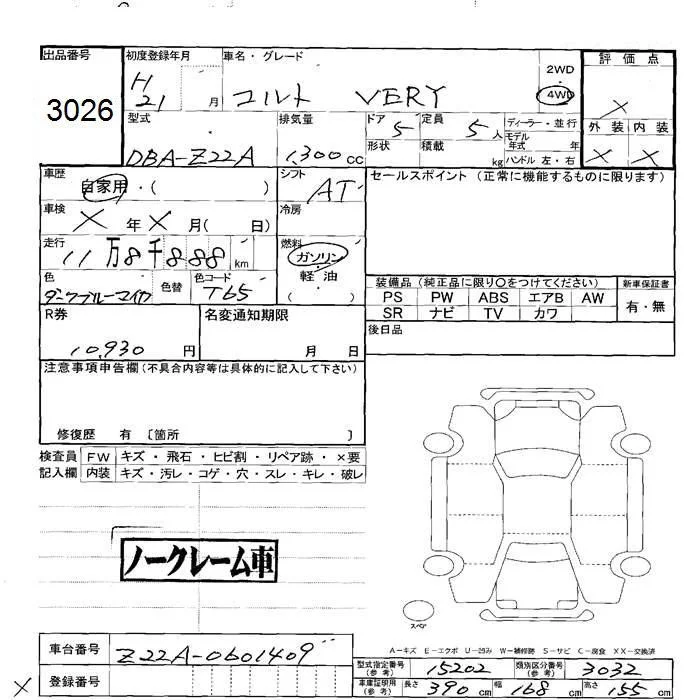 出品番号
3026
初度登録年月
H
21 月
車名・グレード
コルト VERY
2WD
4WD
評価点
X
外装 内装
X X
型式
DBA-Z22A
排気量
1,300cc
ドア 5
形状
定員 5人
積載 kg
ディーラー・並行
モデル年式 年
ハンドル 左・右
車歴
自家用・( )
シフト
AT
冷房
セールスポイント (正常に機能するものに限ります)
車検
X年X月( 日)
走行
11万8千888km
燃料
ガソリン
軽油
( )
色
ダークブルーマイカ
色替
色コード
T65
装備品(純正品に限り〇をつけてください)
PS PW ABS エアB AW
SR ナビ TV カワ
新車保証書
有・無
後日品
R券
10,930円
名変通知期限
月 日
注意事項申告欄(不具合内容等は具体的に記入して下さい)
修復歴 有 〔箇所 〕
検査員記入欄
FW キズ・飛石・ヒビ割・リペア跡・×要
内装 キズ・汚レ・コゲ・穴・スレ・キレ・破レ
ノークレーム車
スペア
A-キズ E-エクボ U-凹み W-補修跡 S-サビ C-腐食 XX-交換済
車台番号
Z22A-0601409
登録番号
X
型式指定番号(参考) 15202
類別区分番号(参考) 3032
車庫証明用(参考) 長さ 390cm 幅 168cm 高さ 155cm